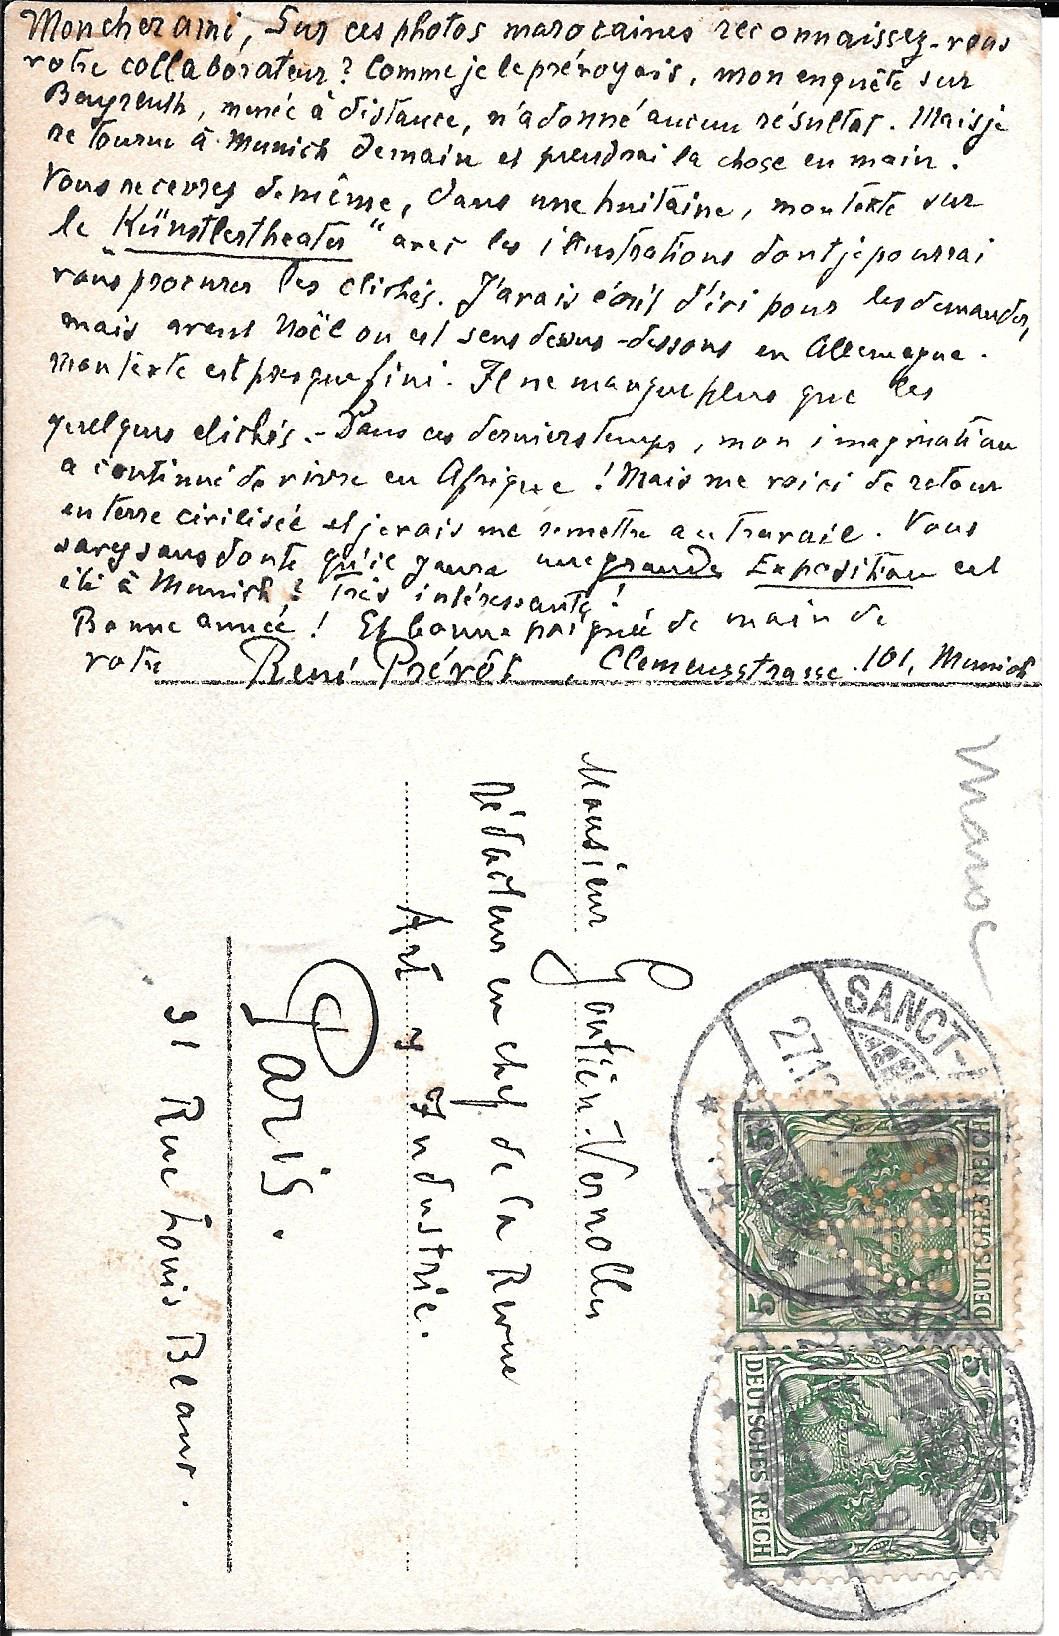 Mon cher ami, Sur ces photos marocaines reconnaissez-vous
votre collaborateur? Comme je le prévoyais, mon enquête sur
Bayreuth, menée à distance, n'a donné aucun résultat. Mais je
retourne à Munich demain et prendrai la chose en main.
Vous recevrez de même, dans une huitaine, mon texte sur
le "Künstlertheater" avec les illustrations dont je pourrai
vous procurer des clichés. J'avais écrit d'ici pour les demander,
mais avant Noël on est sens dessus-dessous en Allemagne.
Mon texte est presque fini. Il ne manque plus que les
quelques clichés. - Dans ces derniers temps, mon imagination
a continué de vivre en Afrique! Mais me voici de retour
en terre civilisée et je vais me remettre au travail. Vous
savez sans doute qu'il y aura une grande Exposition cet
été à Munich? très intéressante!
Bonne année! Et bonne poignée de main de
votre René Prévot Clemensstrasse 101, Munich
Maroc
SANCT-
27.12
DEUTSCHES REICH
5 5
5 5
DEUTSCHES REICH
Monsieur Gontier-Vernolle
Rédacteur en chef de la Revue
Art & Industrie.
Paris.
31 Rue Louis Blanc.